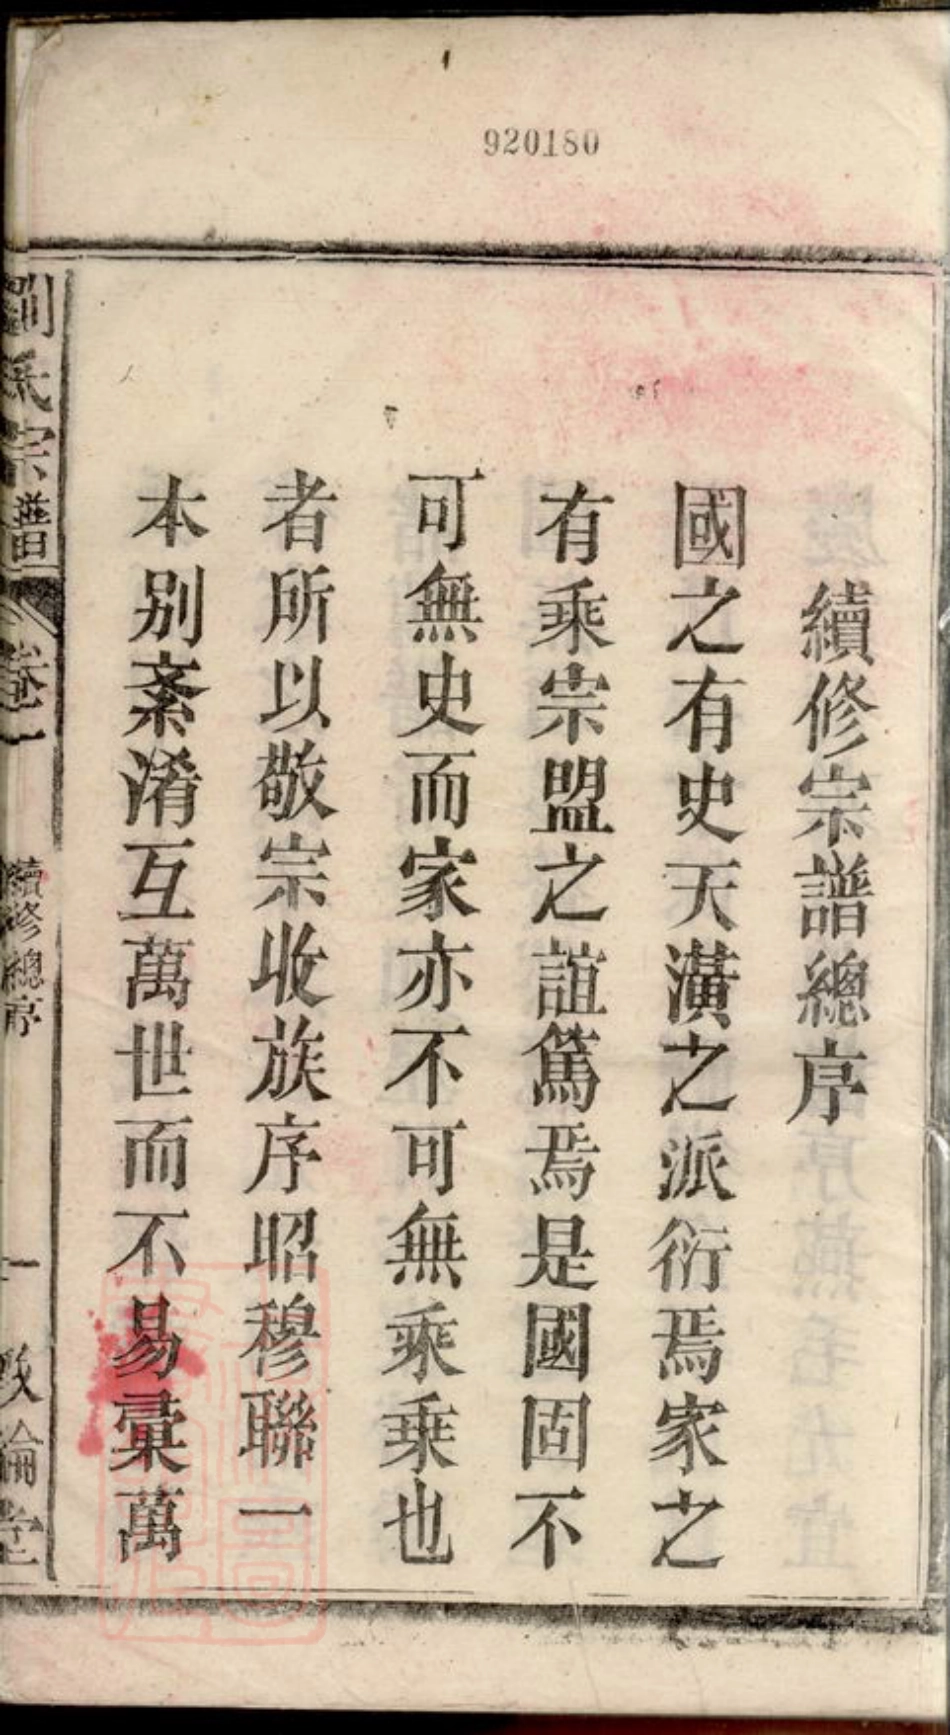 920180
續修宗譜總序
國之有史天潢之派衍焉家之
有乘宗盟之誼篤焉是國固不
可無史而家亦不可無乘乘也
者所以敬宗收族序昭穆聯一
本別紊淆互萬世而不易彙萬
劉氏宗譜
卷一
續修總序
一
敦倫堂